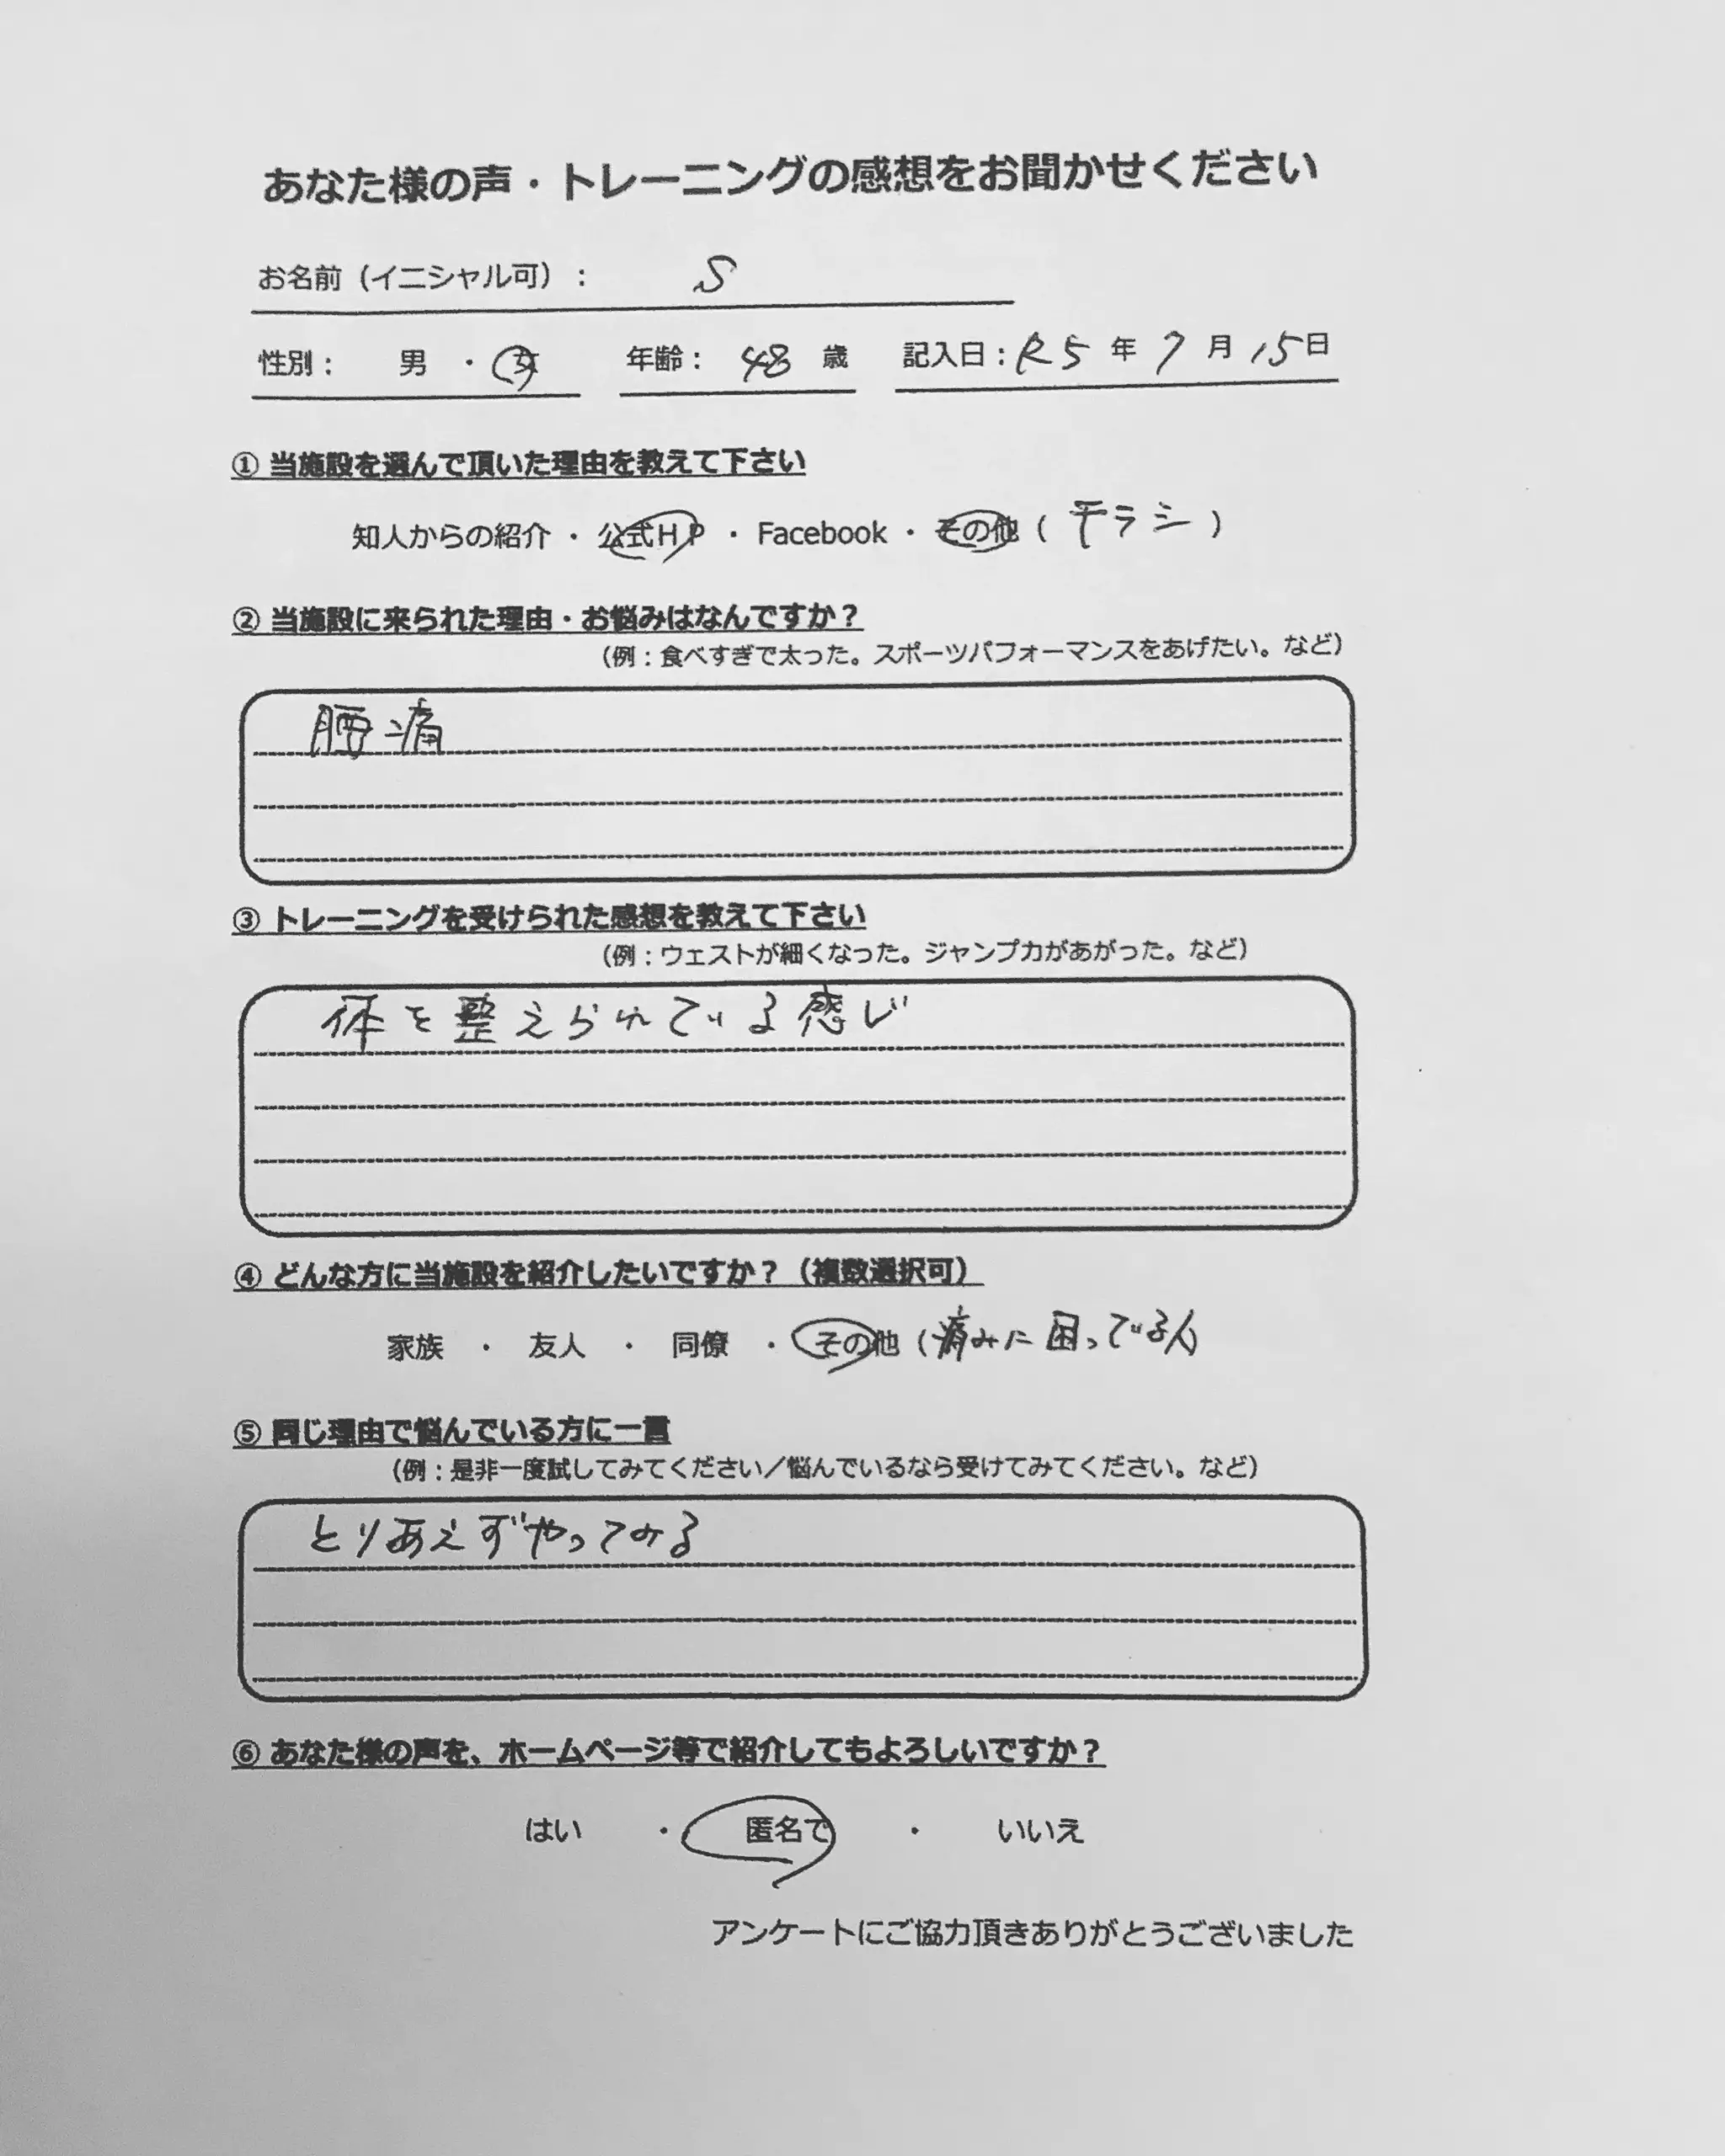 あなた様の声・トレーニングの感想をお聞かせください
お名前（イニシャル可）： S
性別： 男 ・ 女 年齢： 48 歳 記入日：R5 年 7 月 15日
① 当施設を選んで頂いた理由を教えて下さい
知人からの紹介 ・ 公式ＨＰ ・ Facebook ・ その他（ チラシ ）
② 当施設に来られた理由・お悩みはなんですか？
（例：食べすぎで太った。スポーツパフォーマンスをあげたい。など）
腰痛
③ トレーニングを受けられた感想を教えて下さい
（例：ウェストが細くなった。ジャンプ力があがった。など）
体を整えられている感じ
④ どんな方に当施設を紹介したいですか？（複数選択可）
家族 ・ 友人 ・ 同僚 ・ その他（痛みに困っている人）
⑤ 同じ理由で悩んでいる方に一言
（例：是非一度試してみてください／悩んでいるなら受けてみてください。など）
とりあえずやってみる
⑥ あなた様の声を、ホームページ等で紹介してもよろしいですか？
はい ・ 匿名で ・ いいえ
アンケートにご協力頂きありがとうございました